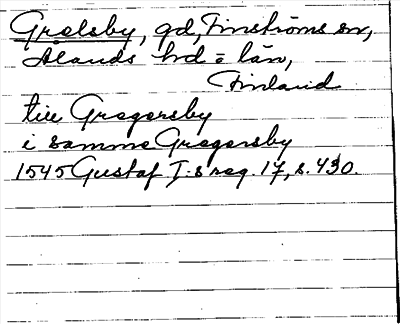 Grelsby, gd, Finströms sn,
Ålands hd o län,
Finland
till Gregersby
i samme Gregersby
1545 Gustaf I:s reg. 17, s. 430.